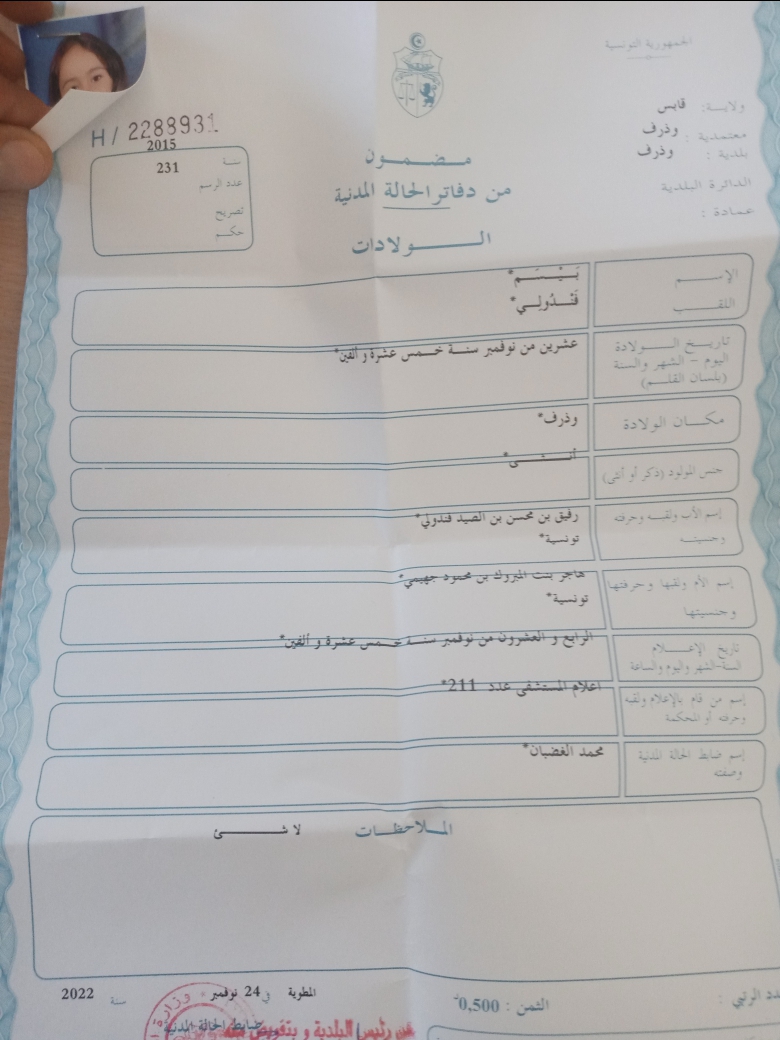 الجمهورية التونسية
ولاية: قابس
معتمدية : وذرف
بلدية : وذرف
الدائرة البلدية
عمادة :
H / 2288931
مضمون
من دفاتر الحالة المدنية
الولادات
سنة 2015
عدد الرسم 231
تصريح
حكم
الإسم بَيْسَم*
اللقب قَنْدُولِي*
تاريخ الولادة
اليوم - الشهر والسنة
(بلسان القلم)
عشرين من نوفمبر سنة خمس عشرة و ألفين*
مكان الولادة وذرف*
جنس المولود (ذكر أو أنثى) أنثى*
إسم الأب ولقبه وحرفته رفيق بن محسن بن الصيد قندولي*
وجنسيته تونسية*
إسم الأم ولقبها وحرفتها هاجر بنت المبروك بن محمود جهيمي*
وجنسيتها تونسية*
تاريخ الإعلام الرابع و العشرون من نوفمبر سنة خمس عشرة و ألفين*
السنة-الشهر واليوم والساعة
إسم من قام بالإعلام ولقبه اعلام المستشفى عدد 211*
وحرفته أو المحكمة
إسم ضابط الحالة المدنية محمد الغضبان*
وصفته
الملاحظات لا شئ
المطوية في 24 نوفمبر سنة 2022
الثمن : 0,500د
عدد الرتبي :
عن رئيس البلدية و بتفويض منه
ضابط الحالة المدنية
وزارة